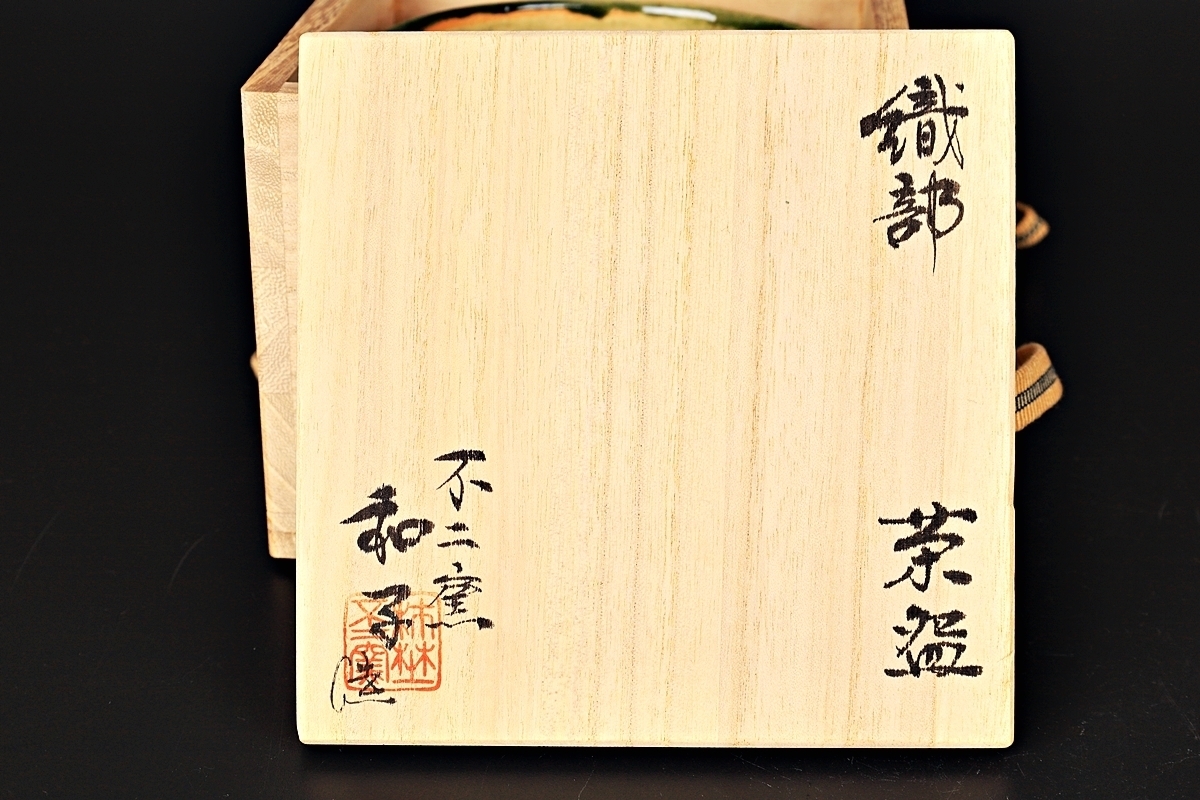 織部
茶盌
不二窯
和子造